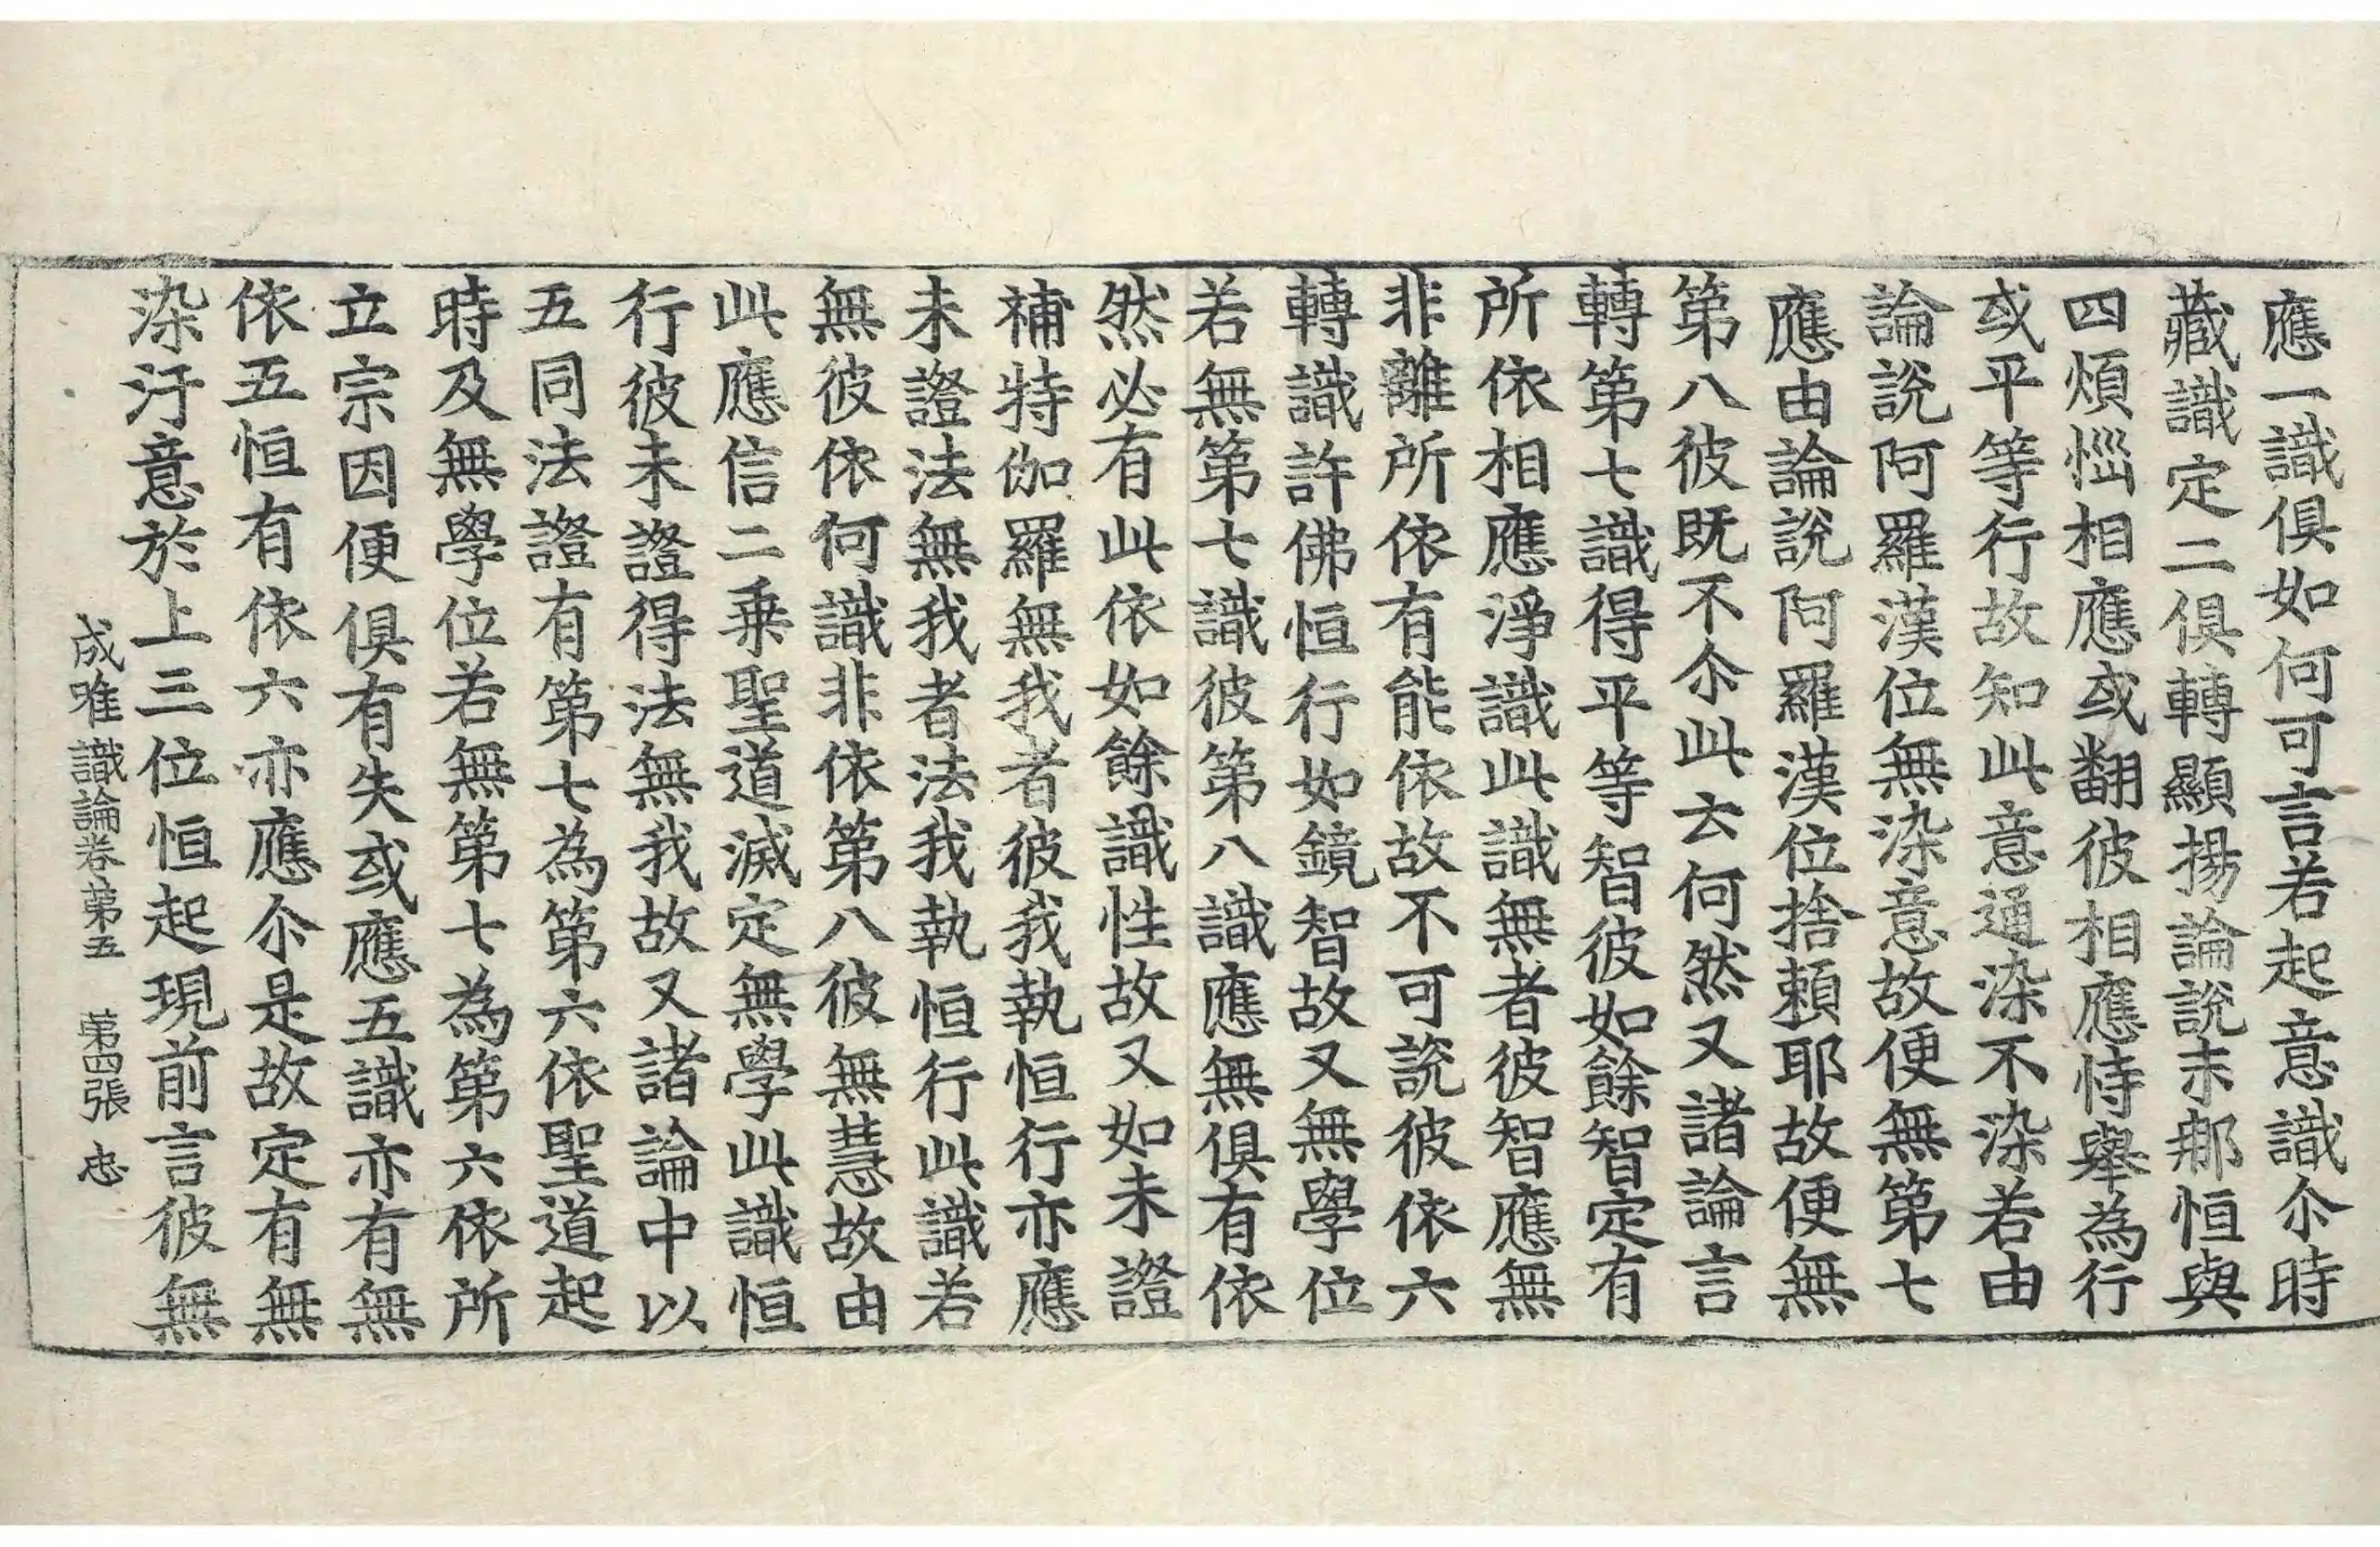 應一識俱如何可言若起意識尒時
藏識定二俱轉顯揚論說末那恒與
四煩惱相應或翻彼相應恃舉為行
或平等行故知此意通染不染若由
論說阿羅漢位無染意故便無第七
應由論說阿羅漢位捨賴耶故便無
第八彼既不尒此云何然又諸論言
轉第七識得平等智彼如餘智定有
所依相應淨識此識無者彼智應無
非離所依有能依故不可說彼依六
轉識許佛恒行如鏡智故又無學位
若無第七識彼第八識應無俱有依
然必有此依如餘識性故又如未證
補特伽羅無我者彼我執恒行亦應
未證法無我者法我執恒行此識若
無彼依何識非依第八彼無慧故由
此應信二乘聖道滅定無學此識恒
行彼未證得法無我故又諸論中以
五同法證有第七為第六依聖道起
時及無學位若無第七為第六依所
立宗因便俱有失或應五識亦有無
依五恒有依六亦應尒是故定有無
染汙意於上三位恒起現前言彼無
成唯識論卷第五 第四張 忠